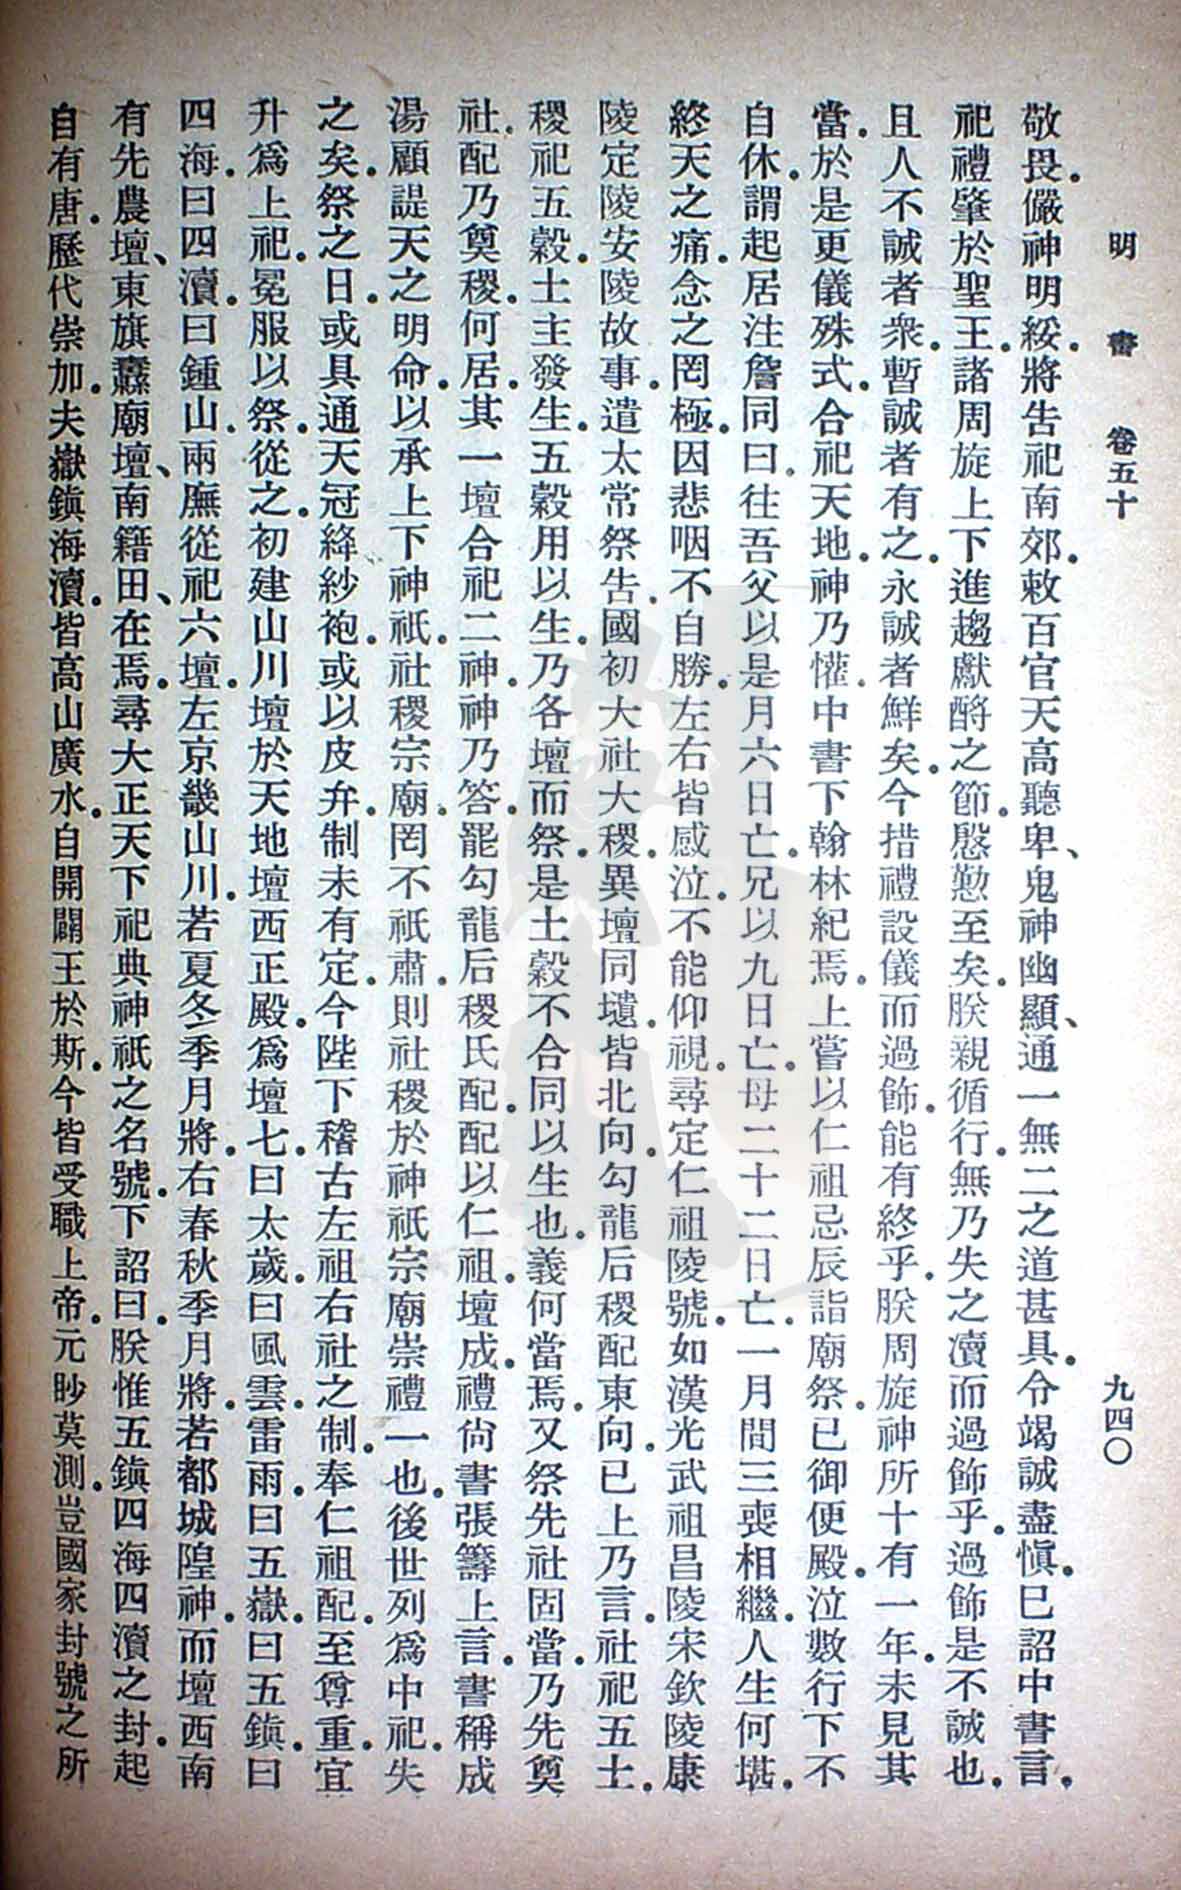 明書 卷五十 九四〇
敬畏。儼神明。綏將告祀南郊。敕百官天高聽卑、鬼神幽顯、通一無二之道甚具。令竭誠盡愼。巳詔中書言。
祀禮肇於聖王。諸周旋上下進趨獻酹之節。慇懃至矣。朕親循行。無乃失之瀆而過飾乎。過飾是不誠也。
且人不誠者衆。暫誠者有之。永誠者鮮矣。今措禮設儀而過飾。能有終乎。朕周旋神所十有一年。未見其
當。於是更儀殊式。合祀天地。神乃懽。中書下翰林紀焉。上嘗以仁祖忌辰詣廟祭。已御便殿。泣數行下不
自休。謂起居注詹同曰。往吾父以是月六日亡。兄以九日亡。母二十二日亡。一月間三喪相繼。人生何堪。
終天之痛。念之罔極。因悲咽不自勝。左右皆感泣。不能仰視。尋定仁祖陵號。如漢光武祖昌陵宋欽陵康
陵定陵安陵故事。遣太常祭告。國初大社大稷。異壇同壝。皆北向。勾龍后稷配東向。已上乃言。社祀五土。
稷祀五穀。土主發生。五穀用以生。乃各壇而祭。是土穀不合同以生也。義何當焉。又祭先社固當。乃先奠
社。配乃奠稷。何居。其一壇合祀二神。神乃答。罷勾龍后稷氏配。配以仁祖。壇成。禮尙書張籌上言。書稱成
湯顧諟天之明命。以承上下神祇。社稷宗廟。罔不祇肅。則社稷於神祇宗廟崇禮一也。後世列爲中祀。失
之矣。祭之日。或具通天冠絳紗袍。或以皮弁。制未有定。今陛下稽古左祖右社之制。奉仁祖配。至尊重。宜
升爲上祀。冕服以祭。從之。初建山川壇於天地壇西。正殿。爲壇七。曰太歲。曰風雲。雷雨。曰五嶽。曰五鎭。曰
四海。曰四瀆。曰鍾山。兩廡從祀六壇。左京畿山川。若夏冬季月將。右春秋季月將。若都城隍神。而壇西南
有先農壇、東旗纛廟壇、南籍田、在焉。尋大正天下祀典神祇之名號。下詔曰。朕惟五鎭四海四瀆之封。起
自有唐。歷代崇加。夫嶽鎭海瀆。皆高山廣水。自開闢王於斯。今皆受職上帝。元眇莫測。豈國家封號之所